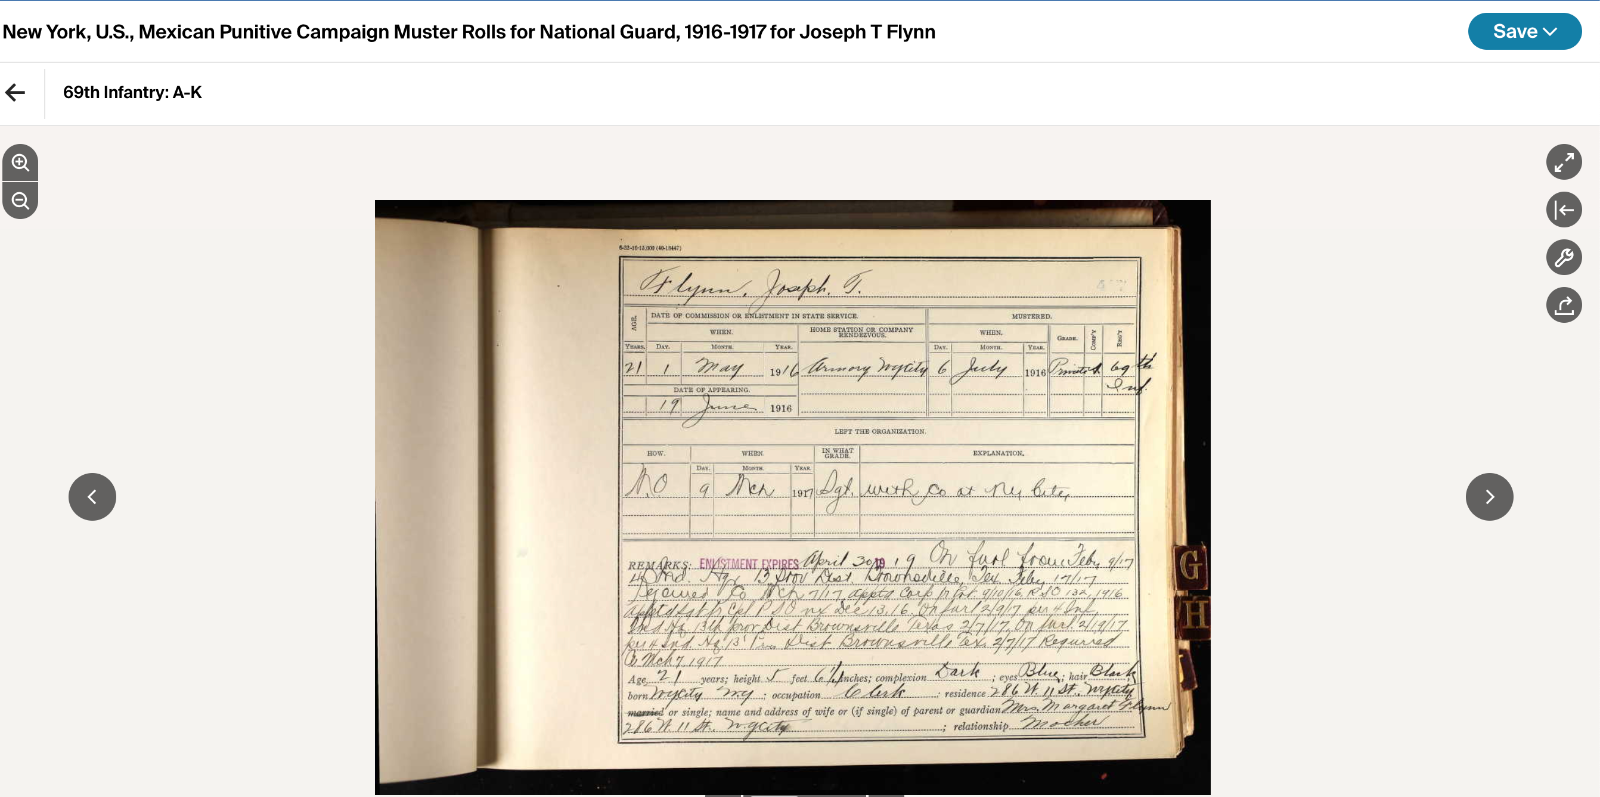 New York, U.S., Mexican Punitive Campaign Muster Rolls for National Guard, 1916-1917 for Joseph T Flynn
Save
69th Infantry: A-K
Flynn, Joseph. T.
AGE.
DATE OF COMMISSION OR ENLISTMENT IN STATE SERVICE.
MUSTERED.
WHEN.
HOME STATION OR COMPANY RENDEZVOUS.
WHEN.
GRADE.
COMP'Y
REG'T
YEARS. DAY. MONTH. YEAR. DAY. MONTH. YEAR.
21 1 May 1916 Armory NYCity 6 July 1916 Private 69th Inf.
DATE OF APPEARING.
19 June 1916
LEFT THE ORGANIZATION.
HOW. WHEN. IN WHAT GRADE. EXPLANATION.
DAY. MONTH. YEAR.
M.O 9 Mch 1917 Sgt. with Co at Ny City
REMARKS: ENLISTMENT EXPIRES April 30 19 19 On furl from Feby 9/17
Hq. 13 Prov Dist. Brownsville, Tex. Feby 17/17
Rejoined Co Mch 7/17, apptd Corp fr Pvt. 9/10/16, R.S.O 132, 1916
apptd Sgt fr Cpl R.S.O Dec 13, 16. On furl 2/9/17 per 4 Ind,
Ind Hq. 13th prov Dist Brownsville Texas 2/7/17, On furl. 2/19/17
per 4 Ind. Hq 13 Dist Brownsville Tex. 2/7/17 Rejoined
Co Mch 7 1917
Age 21 years; height 5 feet 6½ inches; complexion Dark ; eyes Blue ; hair Black
born NYCity NY ; occupation Clerk ; residence 286 W. 11 St., NYCity
married or single; name and address of wife or (if single) of parent or guardian Mrs. Margaret Flynn
286 W. 11 St. N.Y.City ; relationship Mother
G
H